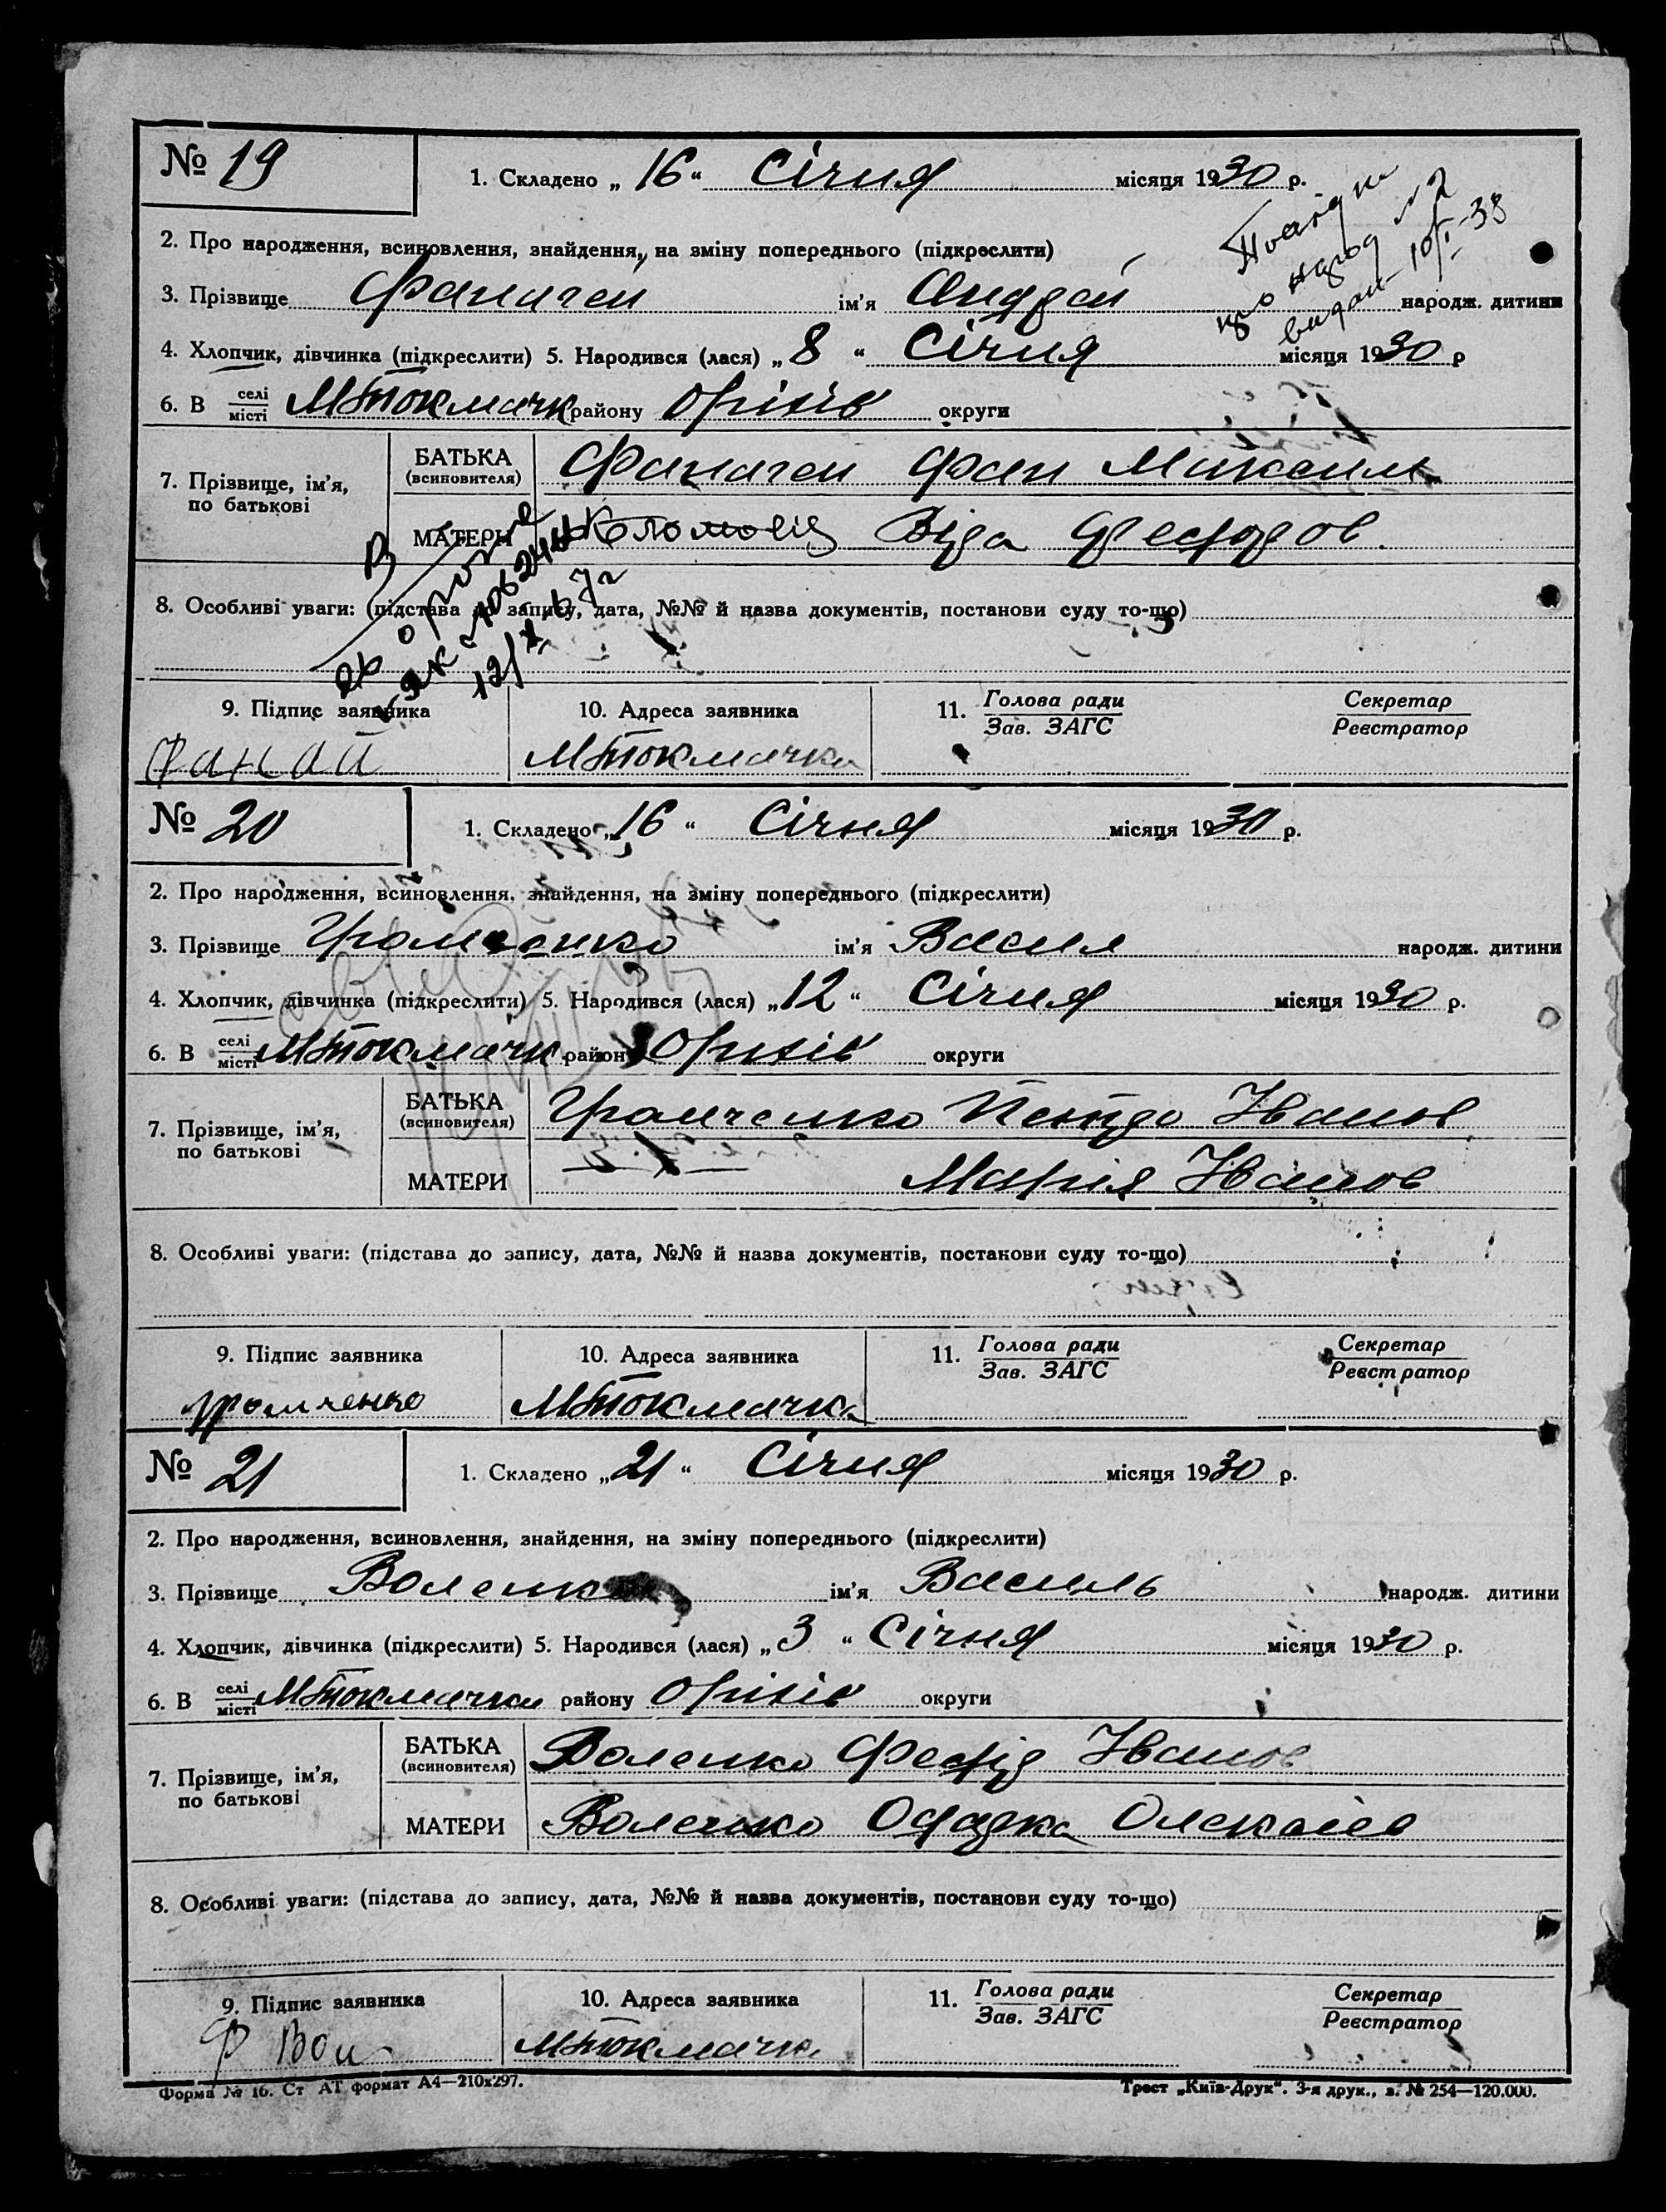 № 19
1. Складено „ 16 “ Січня місяця 1930 р.
2. Про народження, всиновлення, знайдення, на зміну попереднього (підкреслити)
3. Прізвище ім'я Андрей народж. дитини
4. Хлопчик, дівчинка (підкреслити) 5. Народився (лася) „ 8 “ Січня місяця 1930 р
6. В селі/місті МТокмачк району Оріхів округи
7. Прізвище, ім'я, по батькові
БАТЬКА (всиновителя)
МАТЕРИ
8. Особливі уваги: (підстава до запису, дата, №№ й назва документів, постанови суду то-що)
9. Підпис заявника 10. Адреса заявника 11. Голова ради/Зав. ЗАГС Секретар/Реєстратор
МТокмачка
№ 20
1. Складено „ 16 “ Січня місяця 1930 р.
2. Про народження, всиновлення, знайдення, на зміну попереднього (підкреслити)
3. Прізвище Громченко ім'я Васил народж. дитини
4. Хлопчик, дівчинка (підкреслити) 5. Народився (лася) „ 12 “ Січня місяця 1930 р.
6. В селі/місті МТокмачк район Оріхів округи
7. Прізвище, ім'я, по батькові
БАТЬКА (всиновителя) Громченко Петро Іванов
МАТЕРИ — " — Марія Іванов
8. Особливі уваги: (підстава до запису, дата, №№ й назва документів, постанови суду то-що)
9. Підпис заявника 10. Адреса заявника 11. Голова ради/Зав. ЗАГС Секретар/Реєстратор
Громченко МТокмачка
№ 21
1. Складено „ 21 “ Січня місяця 1930 р.
2. Про народження, всиновлення, знайдення, на зміну попереднього (підкреслити)
3. Прізвище ім'я Василь народж. дитини
4. Хлопчик, дівчинка (підкреслити) 5. Народився (лася) „ 3 “ Січня місяця 1930 р.
6. В селі/місті МТокмачки району Оріхів округи
7. Прізвище, ім'я, по батькові
БАТЬКА (всиновителя) Воленко Федір Іванов
МАТЕРИ Воленко Одарка Олексіев
8. Особливі уваги: (підстава до запису, дата, №№ й назва документів, постанови суду то-що)
9. Підпис заявника 10. Адреса заявника 11. Голова ради/Зав. ЗАГС Секретар/Реєстратор
МТокмачка
Форма № 16. Ст АТ формат А4—210х297. Трест „Київ-Друк“. 3-я друк., з. № 254—120.000.